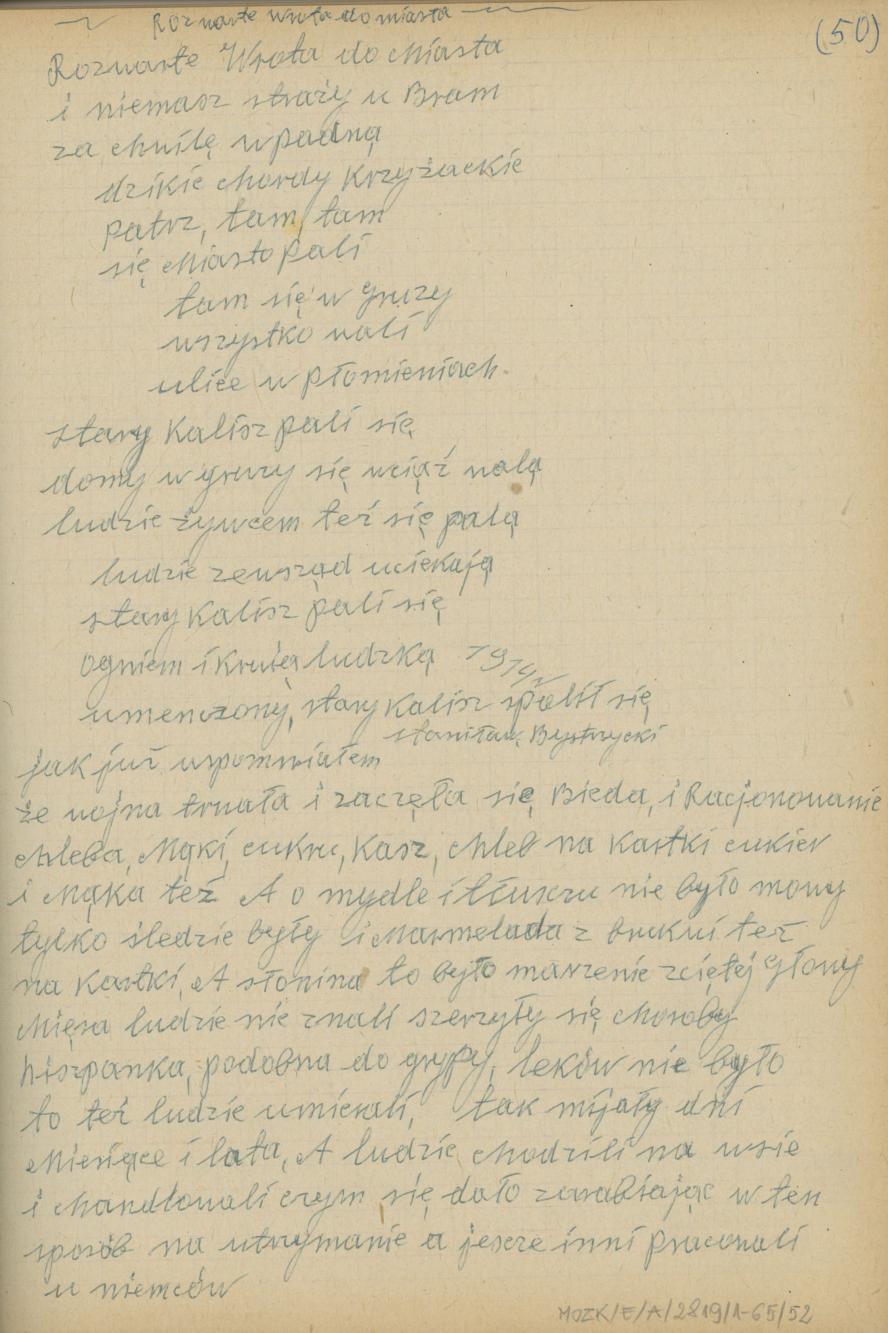 Rozwarte wrota do miasta
(50)
Rozwarte Wrota do Miasta
i niemasz straży u Bram
za chwilę wpadną
dzikie chordy Krzyżackie
patrz, tam, tam
się Miasto pali
tam się w gruzy
wszystko wali
ulice w płomieniach.
stary Kalisz pali się
domy w gruzy się wciąż walą
ludzie żywcem też się palą
ludzie zewsząd uciekają
stary Kalisz pali się
ogniem i Krwią ludzką 1914r
umenczony, stary Kalisz spalił się
stanisław Bystrzycki
jak już wspomniałem
że wojna trwała i zaczęła się Bieda, i Racjonowanie
chleba, Mąki, cukru, Kasz, chleb na Kartki cukier
i Mąka też A o mydle i tłuszczu nie było mowy
tylko śledzie były i Marmelada z brukwi też
na Kartki, A słonina to było marzenie zciętej głowy
Mięsa ludzie nie znali szerzyły się choroby
hiszpanka, podobna do grypy, leków nie było
to też ludzie umierali, tak mijały dni
Miesiące i lata, A ludzie chodzili na wsie
i chandlowali czym się dało zarabiając w ten
sposób na utrzymanie a jescze inni pracowali
u niemców
MOZK/E/A/2819/1-65/52